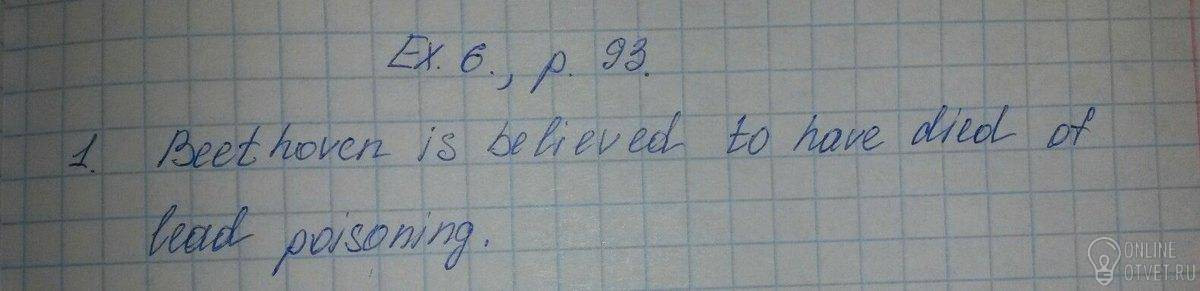 Ex. 6., p. 93.
1. Beethoven is believed to have died of
lead poisoning.
ONLINE
OTVET.RU